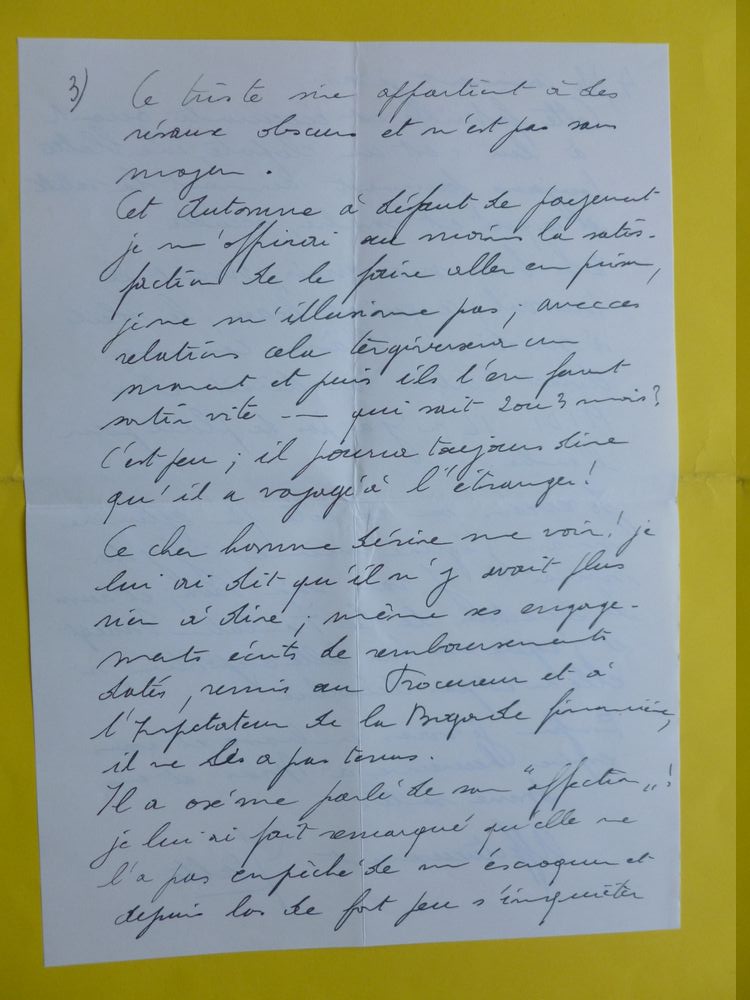 3) Ce triste sire appartient à des
réseaux obscurs et n'est pas sans
moyen.
Cet Automne à défaut de payement
je m'offrirai au moins la satis-
faction de le faire aller en prison,
je ne m'illusionne pas ; avec ces
relations cela tergiversera un
moment et puis ils l'en feront
sortir vite —— qui sait 2 ou 3 mois?
C'est peu ; il pourra toujours dire
qu'il a voyagé à l'étranger!
Ce cher homme désire me voir! je
lui ai dit qu'il n'y avait plus
rien à dire ; même ses engage-
ments écrits de remboursements
datés, remis au Procureur et à
l'Inspectateur de la Brigade financière,
il ne les a pas tenus.
Il a osé me parlé de son "affection"!
je lui ai fait remarqué qu'elle ne
l'a pas empêché de m'éscroquer et
depuis lors de fort peu s'inquiéter